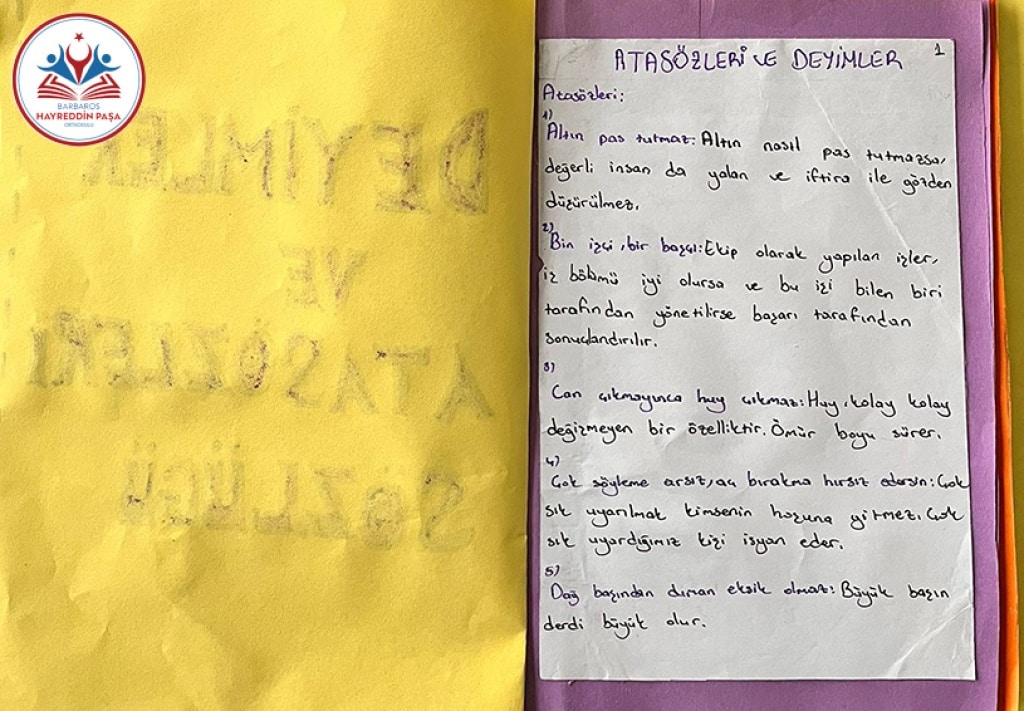 BARBAROS
HAYREDDİN PAŞA
ORTAOKULU
DEYİMLER
VE
ATASÖZLERİ
SÖZLÜĞÜ
1
ATASÖZLERİ VE DEYİMLER
Atasözleri:
1)
Altın pas tutmaz: Altın nasıl pas tutmazsa,
değerli insan da yalan ve iftira ile gözden
düşürülmez.
2)
Bin işçi, bir başçı: Ekip olarak yapılan işler,
iş bölümü iyi olursa ve bu işi bilen biri
tarafından yönetilirse başarı tarafından
sonuçlandırılır.
3)
Can çıkmayınca huy çıkmaz: Huy, kolay kolay
değişmeyen bir özelliktir. Ömür boyu sürer.
4)
Çok söyleme arsız, aç bırakma hırsız edersin: Çok
sık uyarılmak kimsenin hoşuna gitmez. Çok
sık uyardığımız kişi isyan eder.
5)
Dağ başından duman eksik olmaz: Büyük başın
derdi büyük olur.